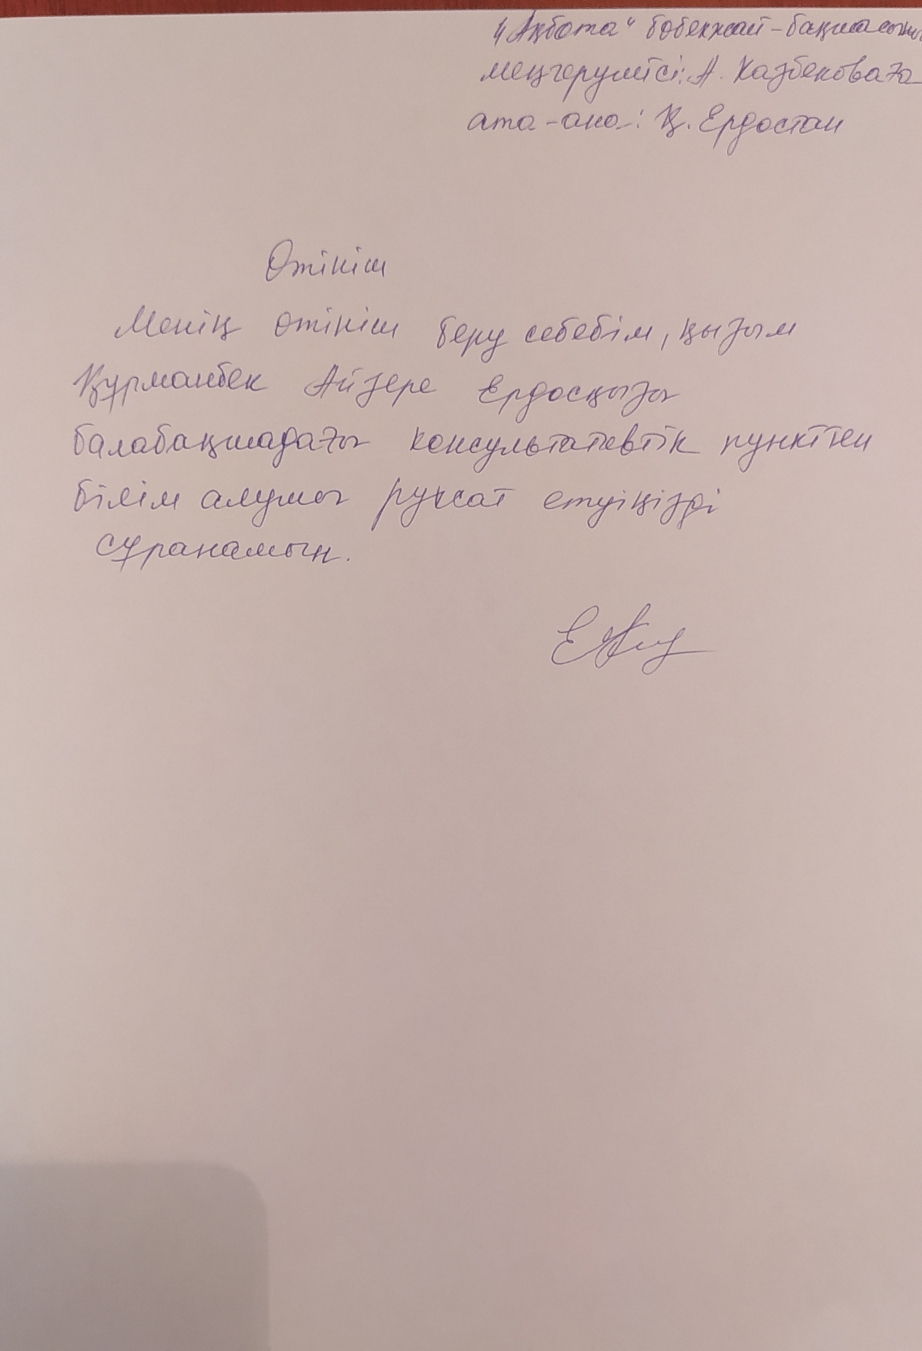 "Ақбота" бөбекжай-бақшасының
меңгерушісі: А. Казбековаға
ата-ана: Қ. Ердостан
Өтініш
Менің өтініш беру себебім, қызым
Құрманбек Айзере Ердосқызы
балабақшадағы консультативтік пунктіен
білім алушы рұқсат етуіңізді
сұранамын.